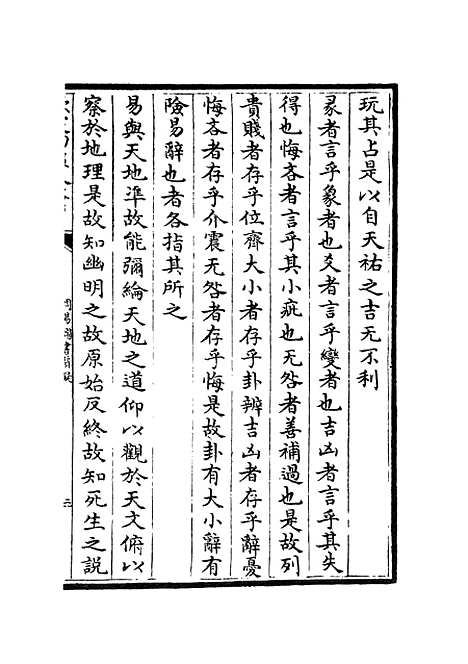 玩其占是以自天祐之吉无不利
彖者言乎象者也爻者言乎變者也吉凶者言乎其失
得也悔吝者言乎其小疵也无咎者善補過也是故列
貴賤者存乎位齊大小者存乎卦辨吉凶者存乎辭憂
悔吝者存乎介震无咎者存乎悔是故卦有大小辭有
險易辭也者各指其所之
易與天地準故能彌綸天地之道仰以觀於天文俯以
察於地理是故知幽明之故原始反終故知死生之説